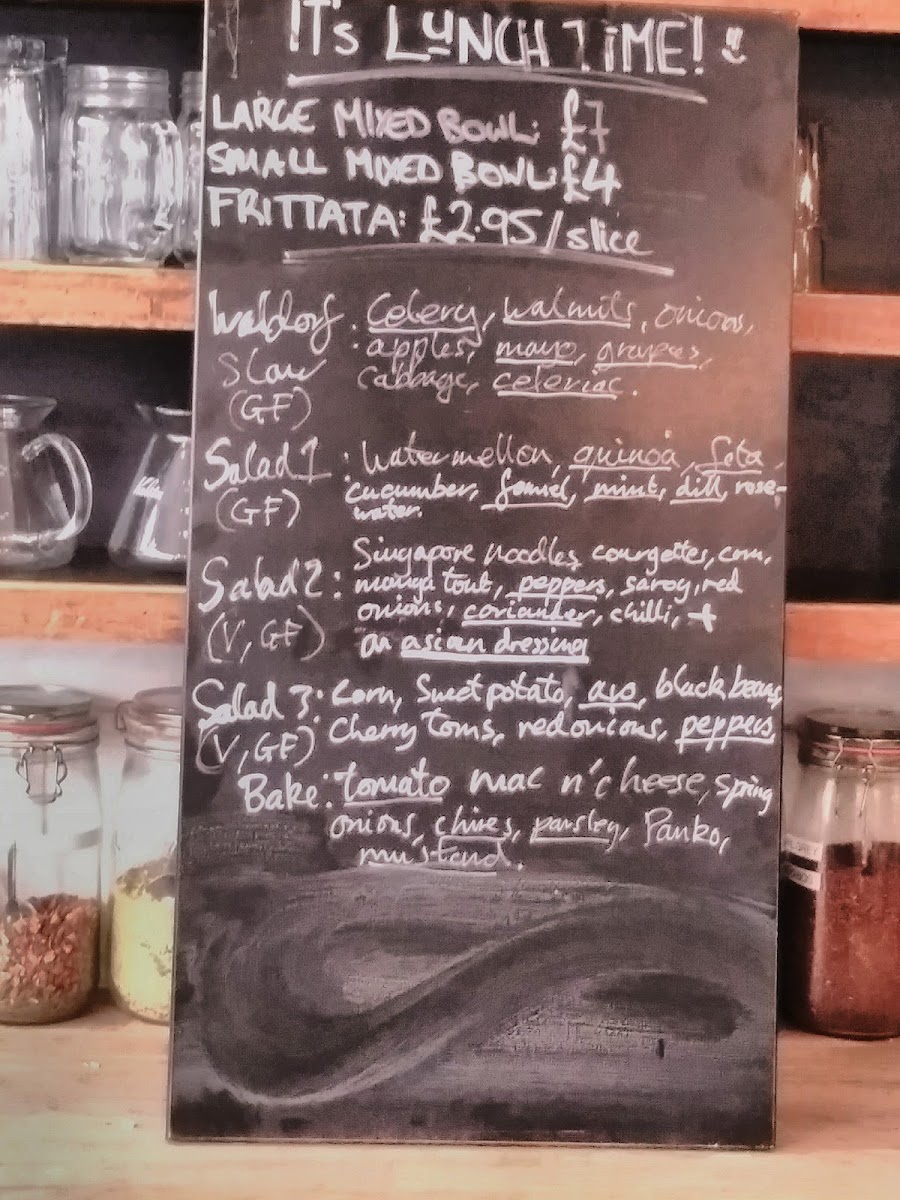 IT'S LUNCH TIME!
LARGE MIXED BOWL: £7
SMALL MIXED BOWL: £4
FRITTATA: £2.95/slice
Waldorf : Celery, walnuts, onions,
Slaw apples, mayo, grapes,
(GF) Cabbage, celeriac.
Salad 1 : Watermellon, quinoa, feta,
(GF) cucumber, fennel, mint, dill, rose-
water.
Salad 2 : Singapore noodles, courgettes, corn,
(V, GF) mange tout, peppers, savoy, red
onions, coriander, chilli, +
an asian dressing
Salad 3: Corn, Sweet potato, avo, black beans,
(V, GF) Cherry toms, red onions, peppers,
Bake: tomato mac n' cheese, spring
onions, chives, parsley, Panko,
mustard.